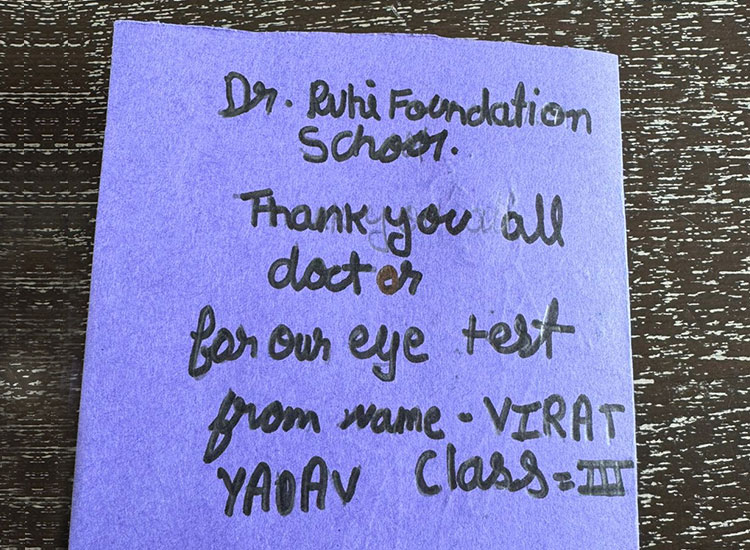 Dr. Ruhi Foundation
School.
Thank you all
doctor
for our eye test
from name - VIRAT
YADAV Class = III